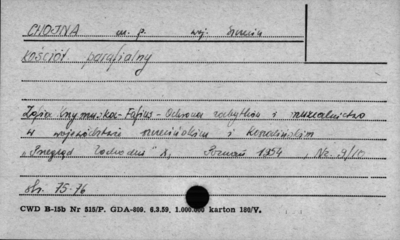 CHOJNA m. p. woj. Szczecin
kościół parafialny
Zofia Krzymuska-Fafius - Ochrona zabytków i muzealnictwo
w województwie szczecińskim i koszalińskim
"Przegląd Zachodni" X, Poznań 1954, Nr. 9/10
str. 75-76
CWD B-15b Nr 515/P. GDA-809. 6.3.59. 1.000.000 karton 180/V.